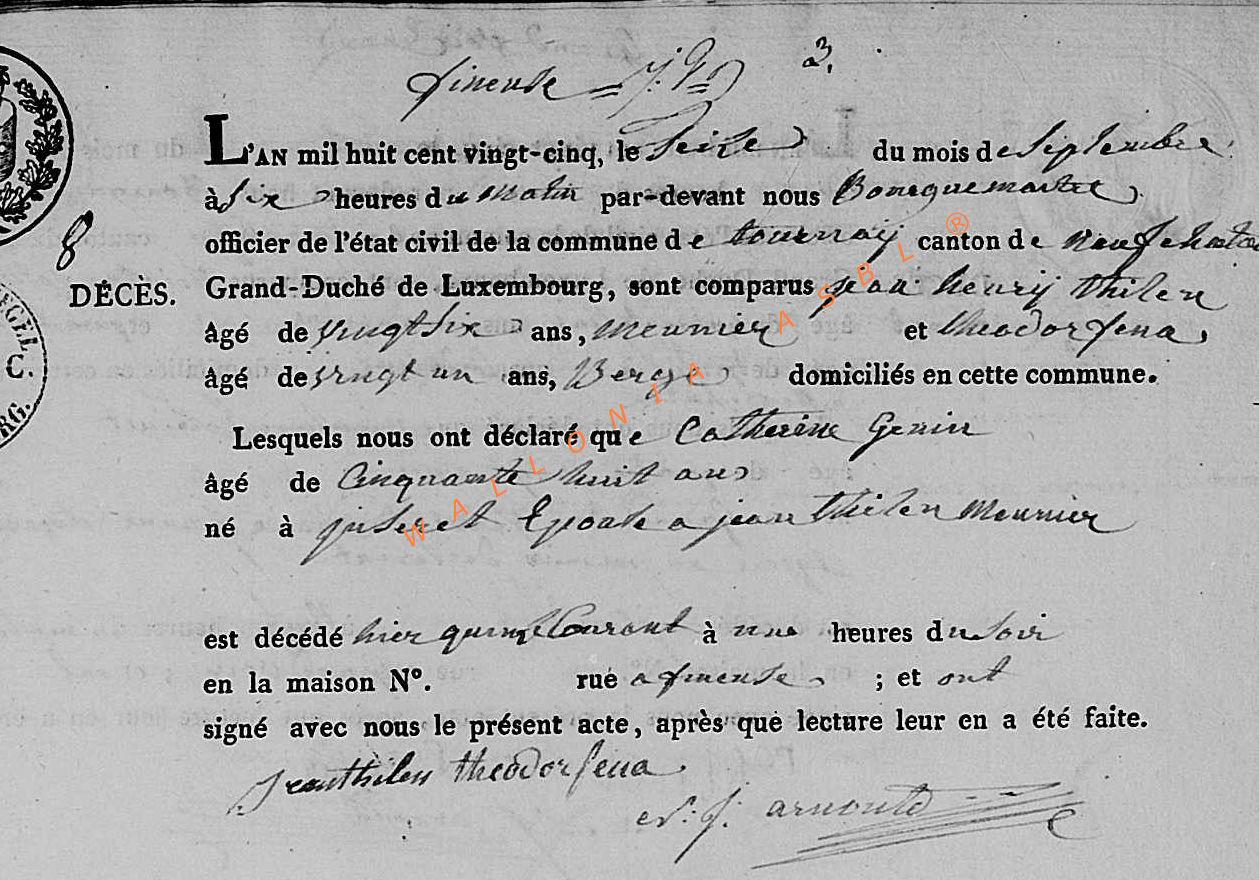 fineuse
3.
L'AN mil huit cent vingt-cinq, le Seize du mois de Septembre
à Six heures du Matin par-devant nous Bourguemaitre
officier de l'état civil de la commune de tournay canton de Neufchatea
8
DÉCÈS. Grand-Duché de Luxembourg, sont comparus jean henry thilen
âgé de vingt six ans, Meunier et theodor fena,
âgé de vingt un ans, Berge domiciliés en cette commune.
Lesquels nous ont déclaré que Catherine Genin
âgé de Cinquante huit ans
né à juseret Epouse a jean thilen Meunier
est décédé hier quinze Courant à une heures du Soir
en la maison N°. rue a fineuse ; et ont
signé avec nous le présent acte, après que lecture leur en a été faite.
jean thilen theodor fena.
arnould
C.
RG.
WALLONIA ASBL ®